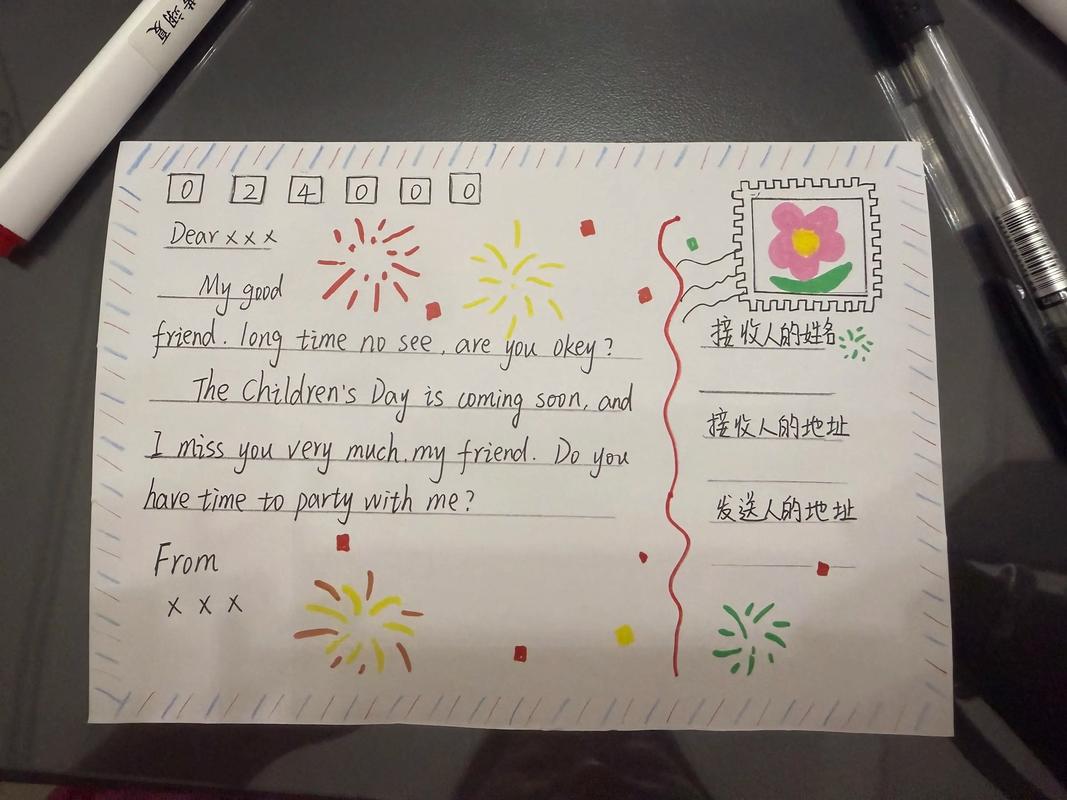 0 2 4 0 0 0
Dear x x x
My good
friend. long time no see, are you okey?
The Children's Day is coming soon, and
I miss you very much. my friend. Do you
have time to party with me?
From
x x x
接收人的姓名
接收人的地址
发送人的地址